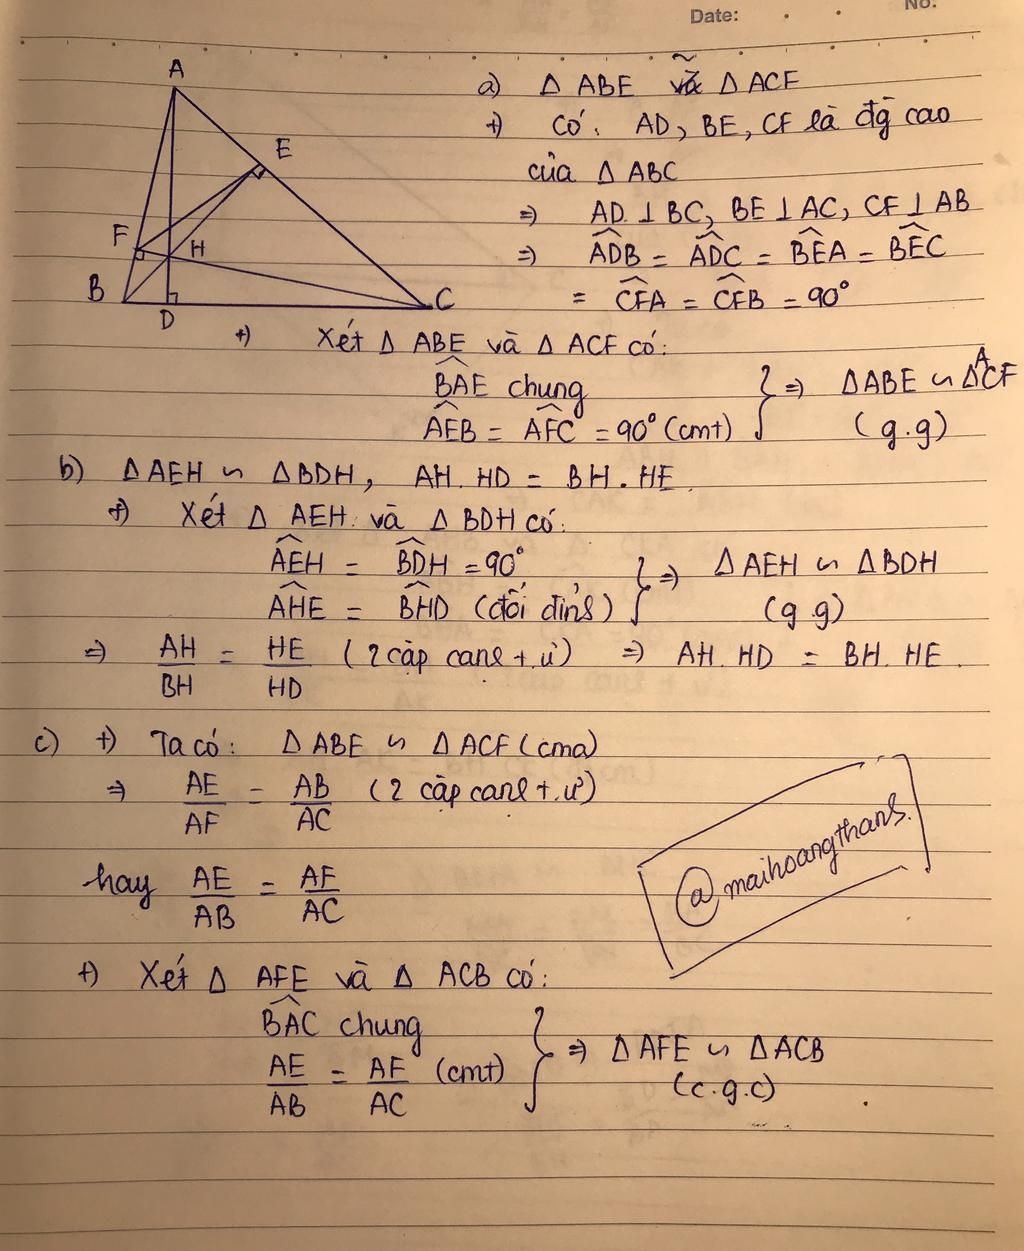 Date: No.
A
E
F
H
B
C
D
a) Δ ABE ~ Δ ACF
+) Có: AD, BE, CF là đg cao
của Δ ABC
=) AD ⊥ BC, BE ⊥ AC, CF ⊥ AB
=) ADB = ADC = BEA = BEC
= CFA = CFB = 90°
+) Xét Δ ABE và Δ ACF có:
BAE chung
AEB = AFC = 90° (cmt) } =) ΔABE ∽ ΔACF
(g.g)
b) Δ AEH ∽ ΔBDH, AH. HD = BH. HE
+) Xét Δ AEH và Δ BDH có:
AEH = BDH = 90°
AHE = BHD (đối đỉnh) } =) Δ AEH ∽ ΔBDH
(g g)
=) AH/BH = HE/HD (2 cặp cạnh t.ứ) =) AH. HD = BH. HE.
c) +) Ta có: Δ ABE ∽ Δ ACF (cma)
=) AE/AF = AB/AC (2 cặp cạnh t.ứ)
hay AE/AB = AF/AC
+) Xét Δ AFE và Δ ACB có:
BAC chung
AE/AB = AF/AC (cmt) } =) Δ AFE ∽ ΔACB
(c.g.c)
@maihoangthanh.